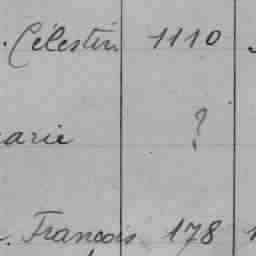 Célestin 1110
arie ?
François 178